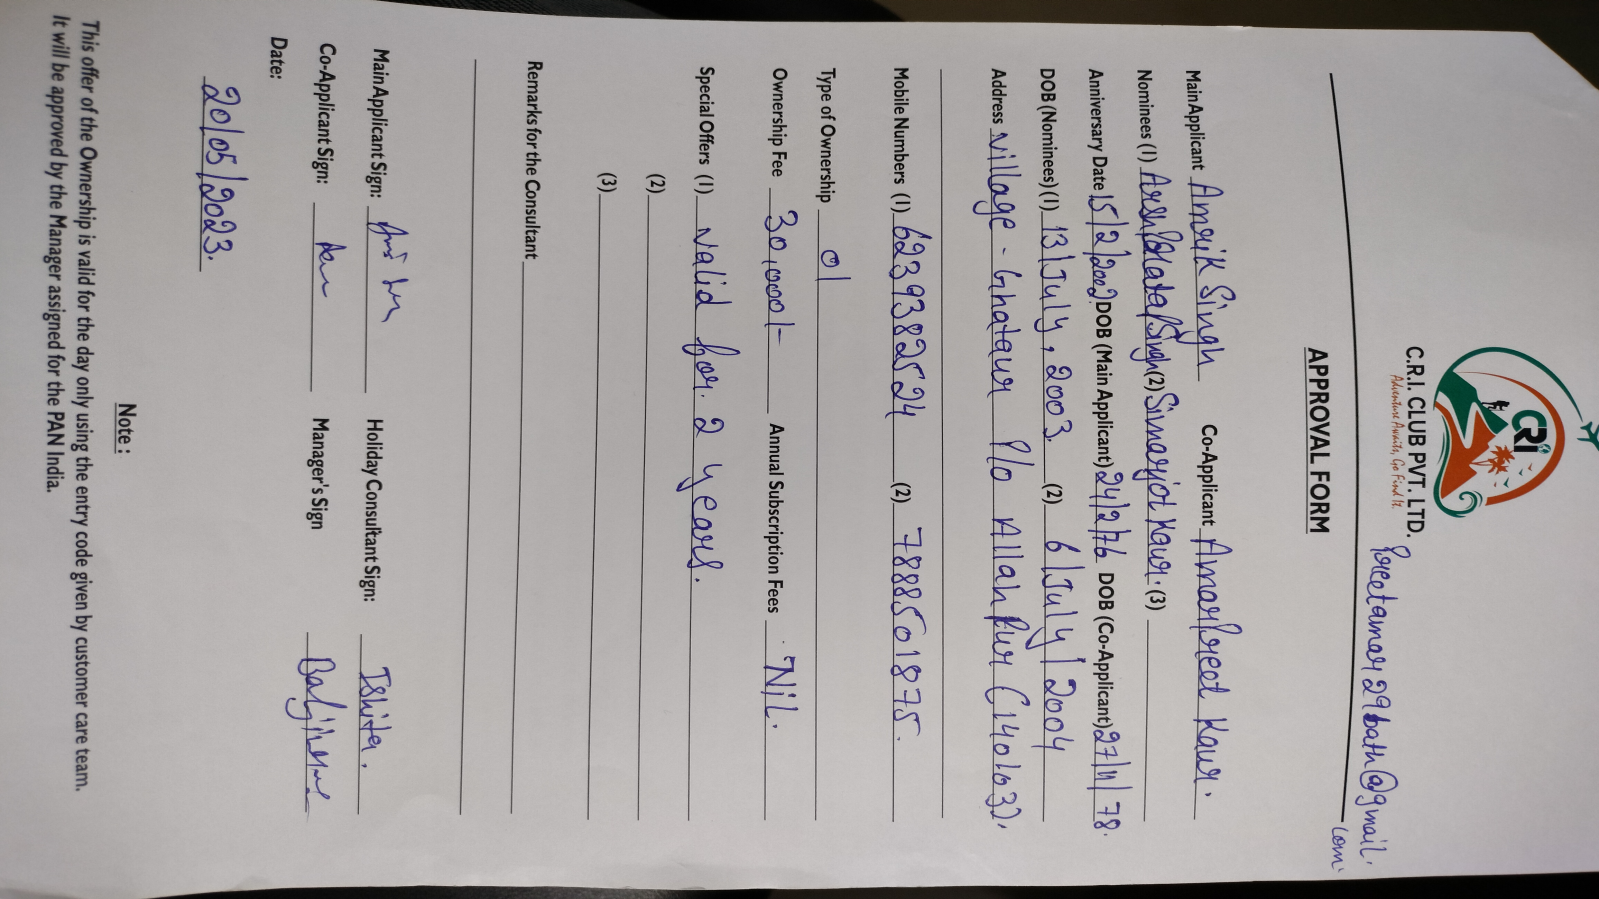 CRI
C.R.I. CLUB PVT. LTD.
Adventure Awaits, Go Find It.
Preetamar29bath@gmail.
com
APPROVAL FORM
Main Applicant Amrik Singh Co-Applicant Amarpreet Kaur.
Nominees (1) Arshpartap Singh (2) Simarjot Kaur. (3)
Anniversary Date 15/2/2002 DOB (Main Applicant) 24/2/76 DOB (Co-Applicant) 27/11/78.
DOB (Nominees) (1) 13/July, 2003. (2) 6/July/2004
Address Village - Ghataur P/o Allahpur (140103).
Mobile Numbers (1) 6239382524 (2) 7888501875.
Type of Ownership 01
Ownership Fee 30,000/- Annual Subscription Fees Nil.
Special Offers (1) Valid for. 2 years.
(2)
(3)
Remarks for the Consultant
Main Applicant Sign: Holiday Consultant Sign: Ishita.
Co-Applicant Sign: Manager's Sign
Date: 20/05/2023.
Note :
This offer of the Ownership is valid for the day only using the entry code given by customer care team.
It will be approved by the Manager assigned for the PAN India.